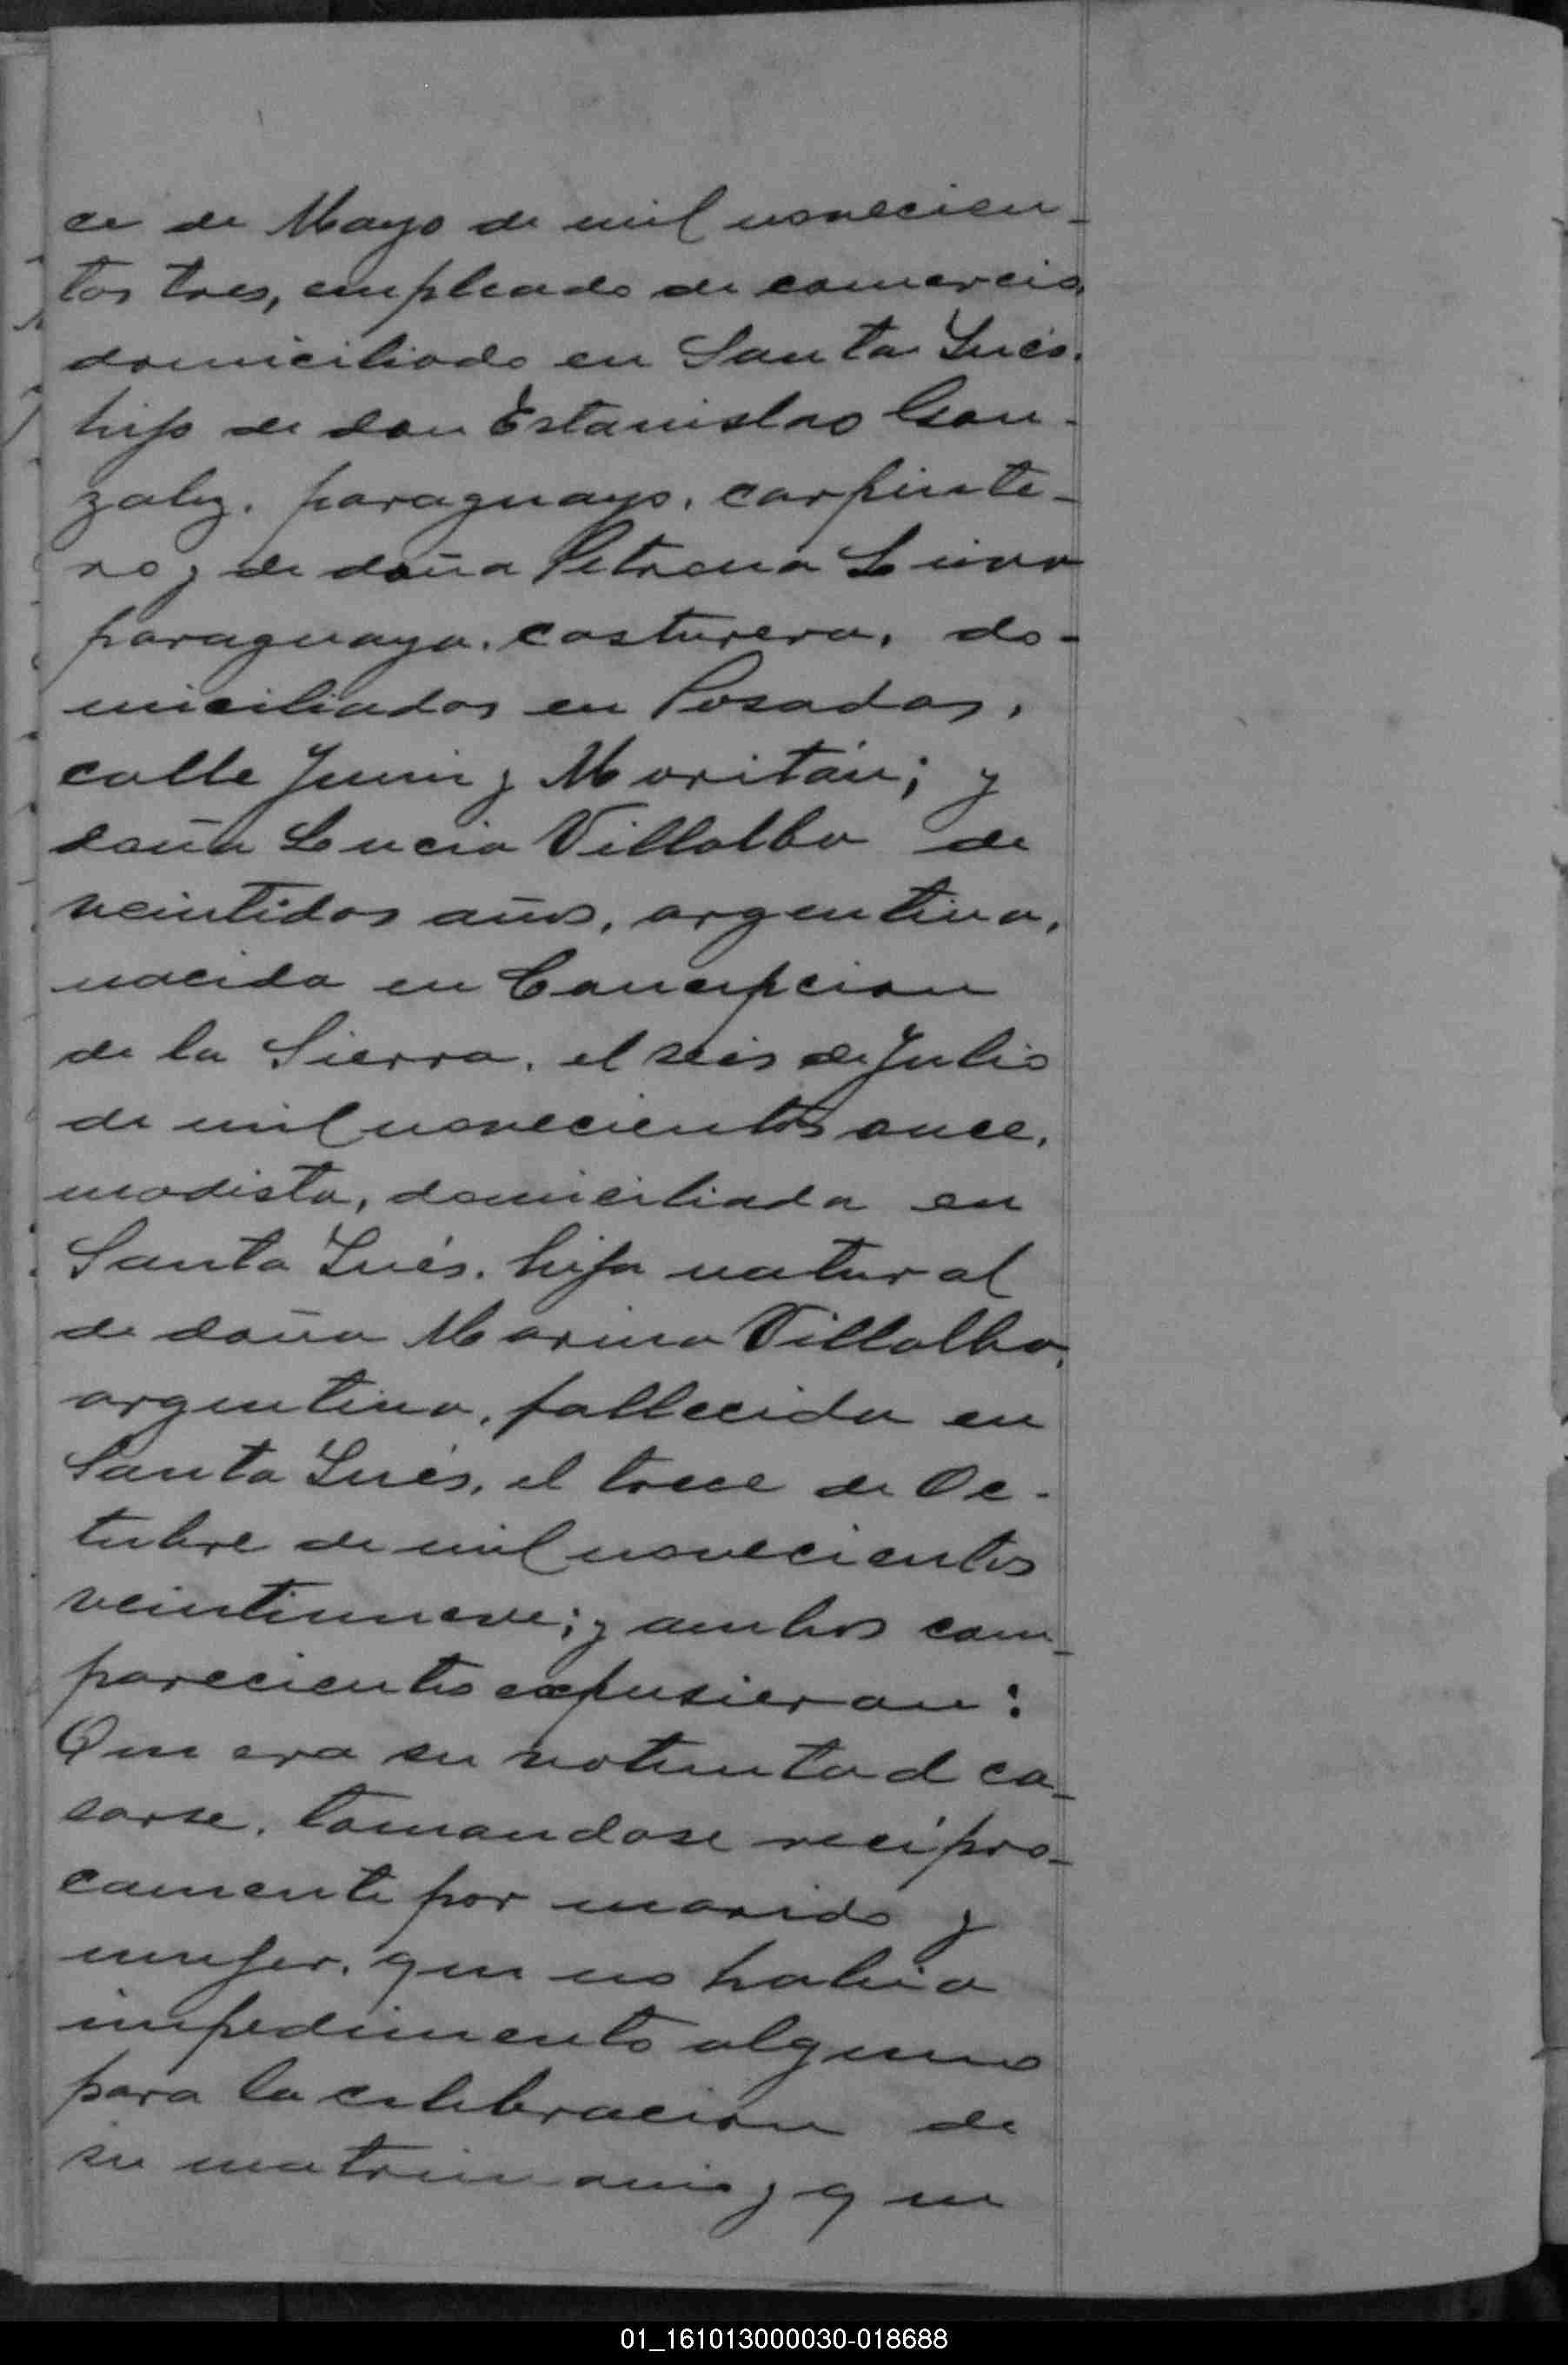 ce de Mayo de mil novecien-
tos tres, empleado de comercio,
domiciliado en Santa Inés.
hijo de don Estanislao Gon-
zalez. paraguayo. carpinte-
ro y de doña Petrona
paraguaya. costurera. do-
miciliados en Posadas.
calle Junin y Moritán; y
doña Lucia Villalba de
veintidos años, argentina,
nacida en Concepcion
de la Sierra. el seis de Julio
de mil novecientos once.
modista, domiciliada en
Santa Inés. hija natural
de doña Marina Villalba,
argentina, fallecida en
Santa Inés, el trece de Oc-
tubre de mil novecientos
veintinueve; y ambos com-
parecientes expusieron:
Que era su voluntad ca-
sarse, tomandose recipro-
camente por marido y
mujer. que no habia
impedimento alguno
para la celebracion de
su matrimonio y que
01_161013000030-018688